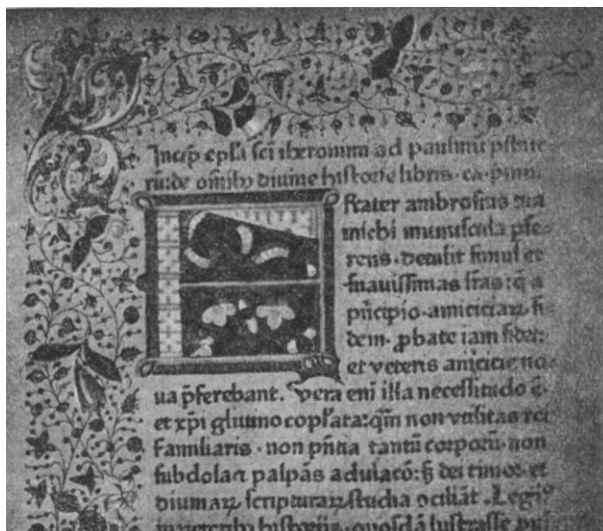 Incip epl'a sci iheronimi ad paulinu psbite-
ru: de omibꝫ diuine historie libris · ca · pmū.
Frater ambrosius tua
michi munuscula pfe-
rens · detulit simul et
suauissimas lras: q̄ a
pncipio · amiciciaꝝ fi-
dem · ꝓbate iam fidei:
et veteris amicicie no-
ua p̄ferebant. Vera eni illa necessitudo ē ·
et xp̄i glutino copl'ata: qm̄ non vtilitas rei
familiaris · non pn̄tia tantū corporū · non
subdola ⁊ palpās adulacō: s̄ dei timor · et
diuinaꝝ scripturaꝝ studia cōciliāt. Legiꝰ